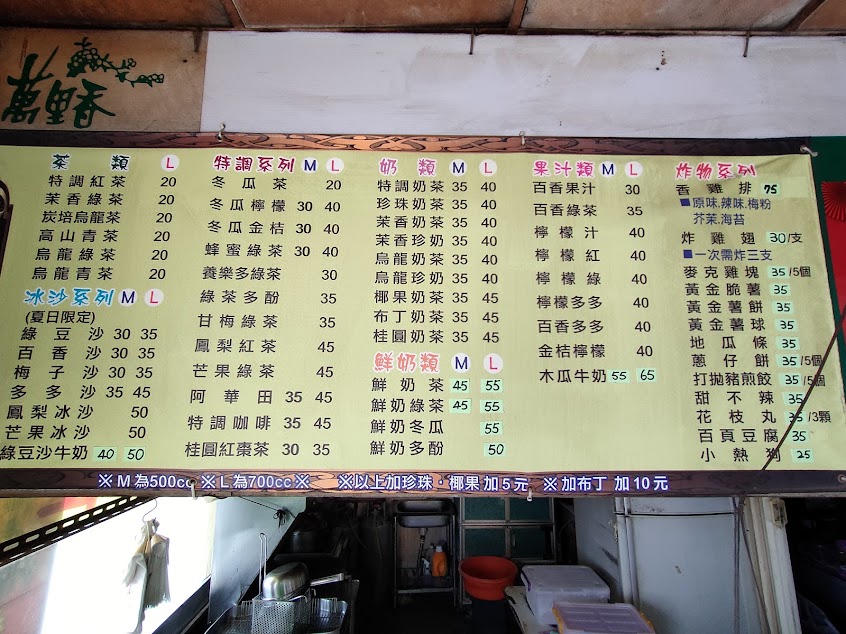 萬里香
茶類 L
特調紅茶 20
茉香綠茶 20
炭培烏龍茶 20
高山青茶 20
烏龍綠茶 20
烏龍青茶 20
冰沙系列 M L
(夏日限定)
綠豆沙 30 35
百香沙 30 35
梅子沙 30 35
多多沙 35 45
鳳梨冰沙 50
芒果冰沙 50
綠豆沙牛奶 40 50
特調系列 M L
冬瓜茶 20
冬瓜檸檬 30 40
冬瓜金桔 30 40
蜂蜜綠茶 30 40
養樂多綠茶 30
綠茶多酚 35
甘梅綠茶 35
鳳梨紅茶 45
芒果綠茶 45
阿華田 35 45
特調咖啡 35 45
桂圓紅棗茶 30 35
奶類 M L
特調奶茶 35 40
珍珠奶茶 35 40
茉香奶茶 35 40
茉香珍奶 35 40
烏龍奶茶 35 40
烏龍珍奶 35 40
椰果奶茶 35 45
布丁奶茶 35 45
桂圓奶茶 35 45
鮮奶類 M L
鮮奶茶 45 55
鮮奶綠茶 45 55
鮮奶冬瓜 55
鮮奶多酚 50
果汁類 M L
百香果汁 30
百香綠茶 35
檸檬汁 40
檸檬紅 40
檸檬綠 40
檸檬多多 40
百香多多 40
金桔檸檬 40
木瓜牛奶 55 65
炸物系列
香雞排 75
■原味.辣味.梅粉
芥茉.海苔
炸雞翅 30/支
■一次需炸三支
麥克雞塊 35/5個
黃金脆薯 35
黃金薯餅 35
黃金薯球 35
地瓜條 35
蔥仔餅 35/5個
打拋豬煎餃 35/5個
甜不辣 35
花枝丸 35/3顆
百頁豆腐 35
小熱狗 25
※M為500cc ※L為700cc※ ※以上加珍珠・椰果加5元 ※加布丁 加10元